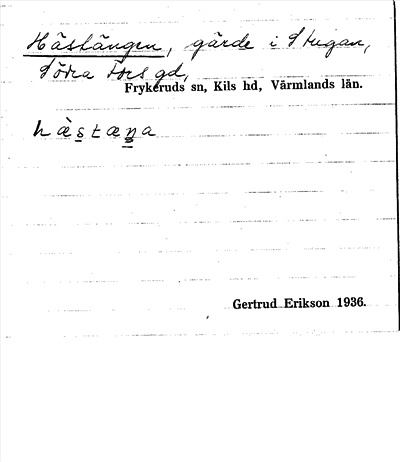 Hästängen, gärde i Stugan,
Södra Fors gd,
Frykeruds sn, Kils hd, Värmlands län.
hæ̀s̲tæŋ̲a
Gertrud Erikson 1936.